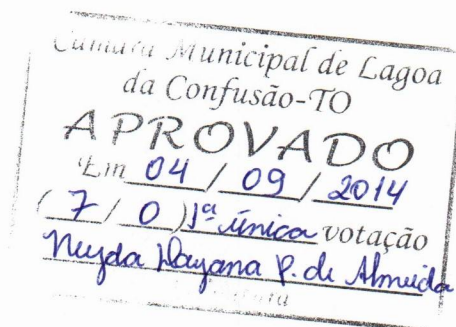 Câmara Municipal de Lagoa
da Confusão-TO
APROVADO
Em 04 / 09 / 2014
( 7 / 0 ) 1ª única votação
Neyda Dayana P. de Almeida